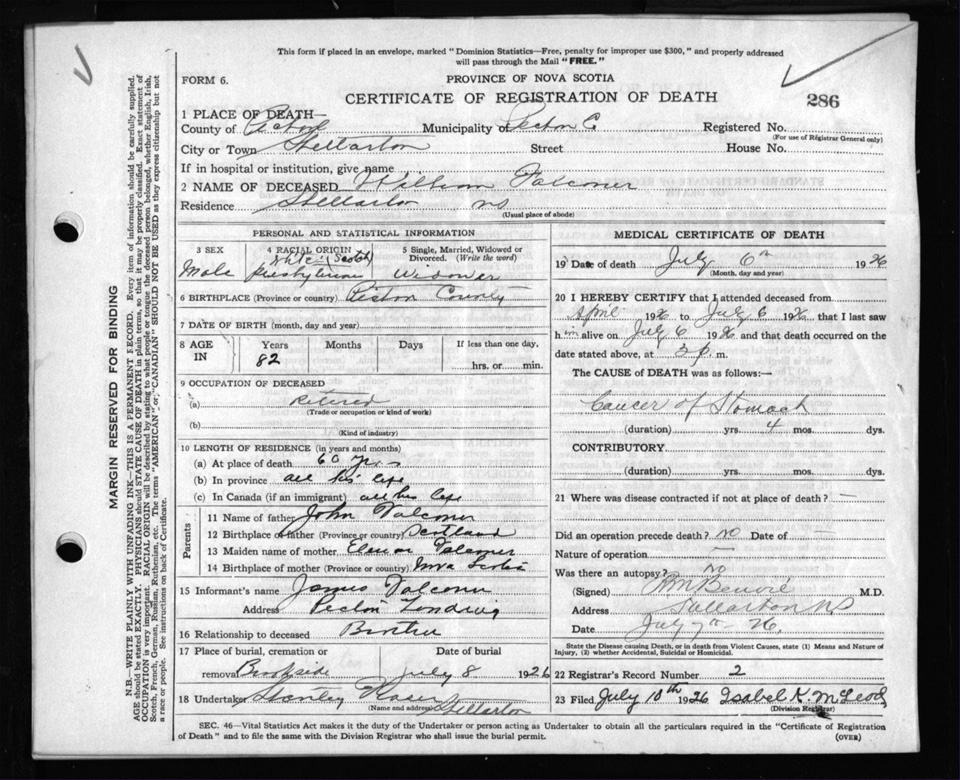 This form if placed in an envelope, marked "Dominion Statistics—Free, penalty for improper use $300," and properly addressed
will pass through the Mail "FREE."
FORM 6.
PROVINCE OF NOVA SCOTIA
CERTIFICATE OF REGISTRATION OF DEATH
286
1 PLACE OF DEATH—
County of Pictou Municipality of Pictou C Registered No.
(For use of Registrar General only)
City or Town Stellarton Street House No.
If in hospital or institution, give name
2 NAME OF DECEASED William Falconer
Residence Stellarton NS
(Usual place of abode)
PERSONAL AND STATISTICAL INFORMATION
3 SEX 4 RACIAL ORIGIN 5 Single, Married, Widowed or Divorced. (Write the word)
White Scotch
Male Presbyterian Widower
6 BIRTHPLACE (Province or country) Pictou County
7 DATE OF BIRTH (month, day and year)
8 AGE IN Years Months Days If less than one day,
82 hrs. or min.
9 OCCUPATION OF DECEASED
(a) Retired
(Trade or occupation or kind of work)
(b)
(Kind of industry)
10 LENGTH OF RESIDENCE (in years and months)
(a) At place of death 60 yrs
(b) In province all his life
(c) In Canada (if an immigrant) all his life
Parents
11 Name of father John Falconer
12 Birthplace of father (Province or country) Scotland
13 Maiden name of mother Falconer
14 Birthplace of mother (Province or country) Nova Scotia
15 Informant's name James Falconer
Address Pictou Landing
16 Relationship to deceased Brother
17 Place of burial, cremation or Date of burial
removal Brookside July 8 1926
18 Undertaker Stanley Fraser
(Name and address) Stellarton
MEDICAL CERTIFICATE OF DEATH
19 Date of death July 6th 1926
(Month, day and year)
20 I HEREBY CERTIFY that I attended deceased from
April 1926 to July 6 1926 that I last saw
him alive on July 6 1926 and that death occurred on the
date stated above, at 3 p. m.
The CAUSE of DEATH was as follows:—
Cancer of Stomach
(duration) yrs. 4 mos. dys.
CONTRIBUTORY
(duration) yrs. mos. dys.
21 Where was disease contracted if not at place of death? —
Did an operation precede death? no Date of —
Nature of operation —
Was there an autopsy? no
(Signed) M.D.
Address Stellarton NS
Date July 7th 26.
State the Disease causing Death, or in death from Violent Causes, state (1) Means and Nature of
Injury, (2) whether Accidental, Suicidal or Homicidal.
22 Registrar's Record Number 2
23 Filed July 10th 1926 Isabel K. McLeod
(Division Registrar)
SEC. 46—Vital Statistics Act makes it the duty of the Undertaker or person acting as Undertaker to obtain all the particulars required in the "Certificate of Registration
of Death" and to file the same with the Division Registrar who shall issue the burial permit. (OVER)
MARGIN RESERVED FOR BINDING
N.B.—WRITE PLAINLY WITH UNFADING INK—THIS IS A PERMANENT RECORD. Every item of information should be carefully supplied.
AGE should be stated EXACTLY. PHYSICIANS should STATE CAUSE OF DEATH in plain terms, so that it may be properly classified. Exact statement of
OCCUPATION is very important. RACIAL ORIGIN will be described by stating to what people or tongue the deceased person belonged, whether English, Irish,
Scotch, French, German, Russian, Ruthenian, etc. The terms "AMERICAN" or "CANADIAN" SHOULD NOT BE USED as they express citizenship but not
a race or people. See instructions on back of Certificate.